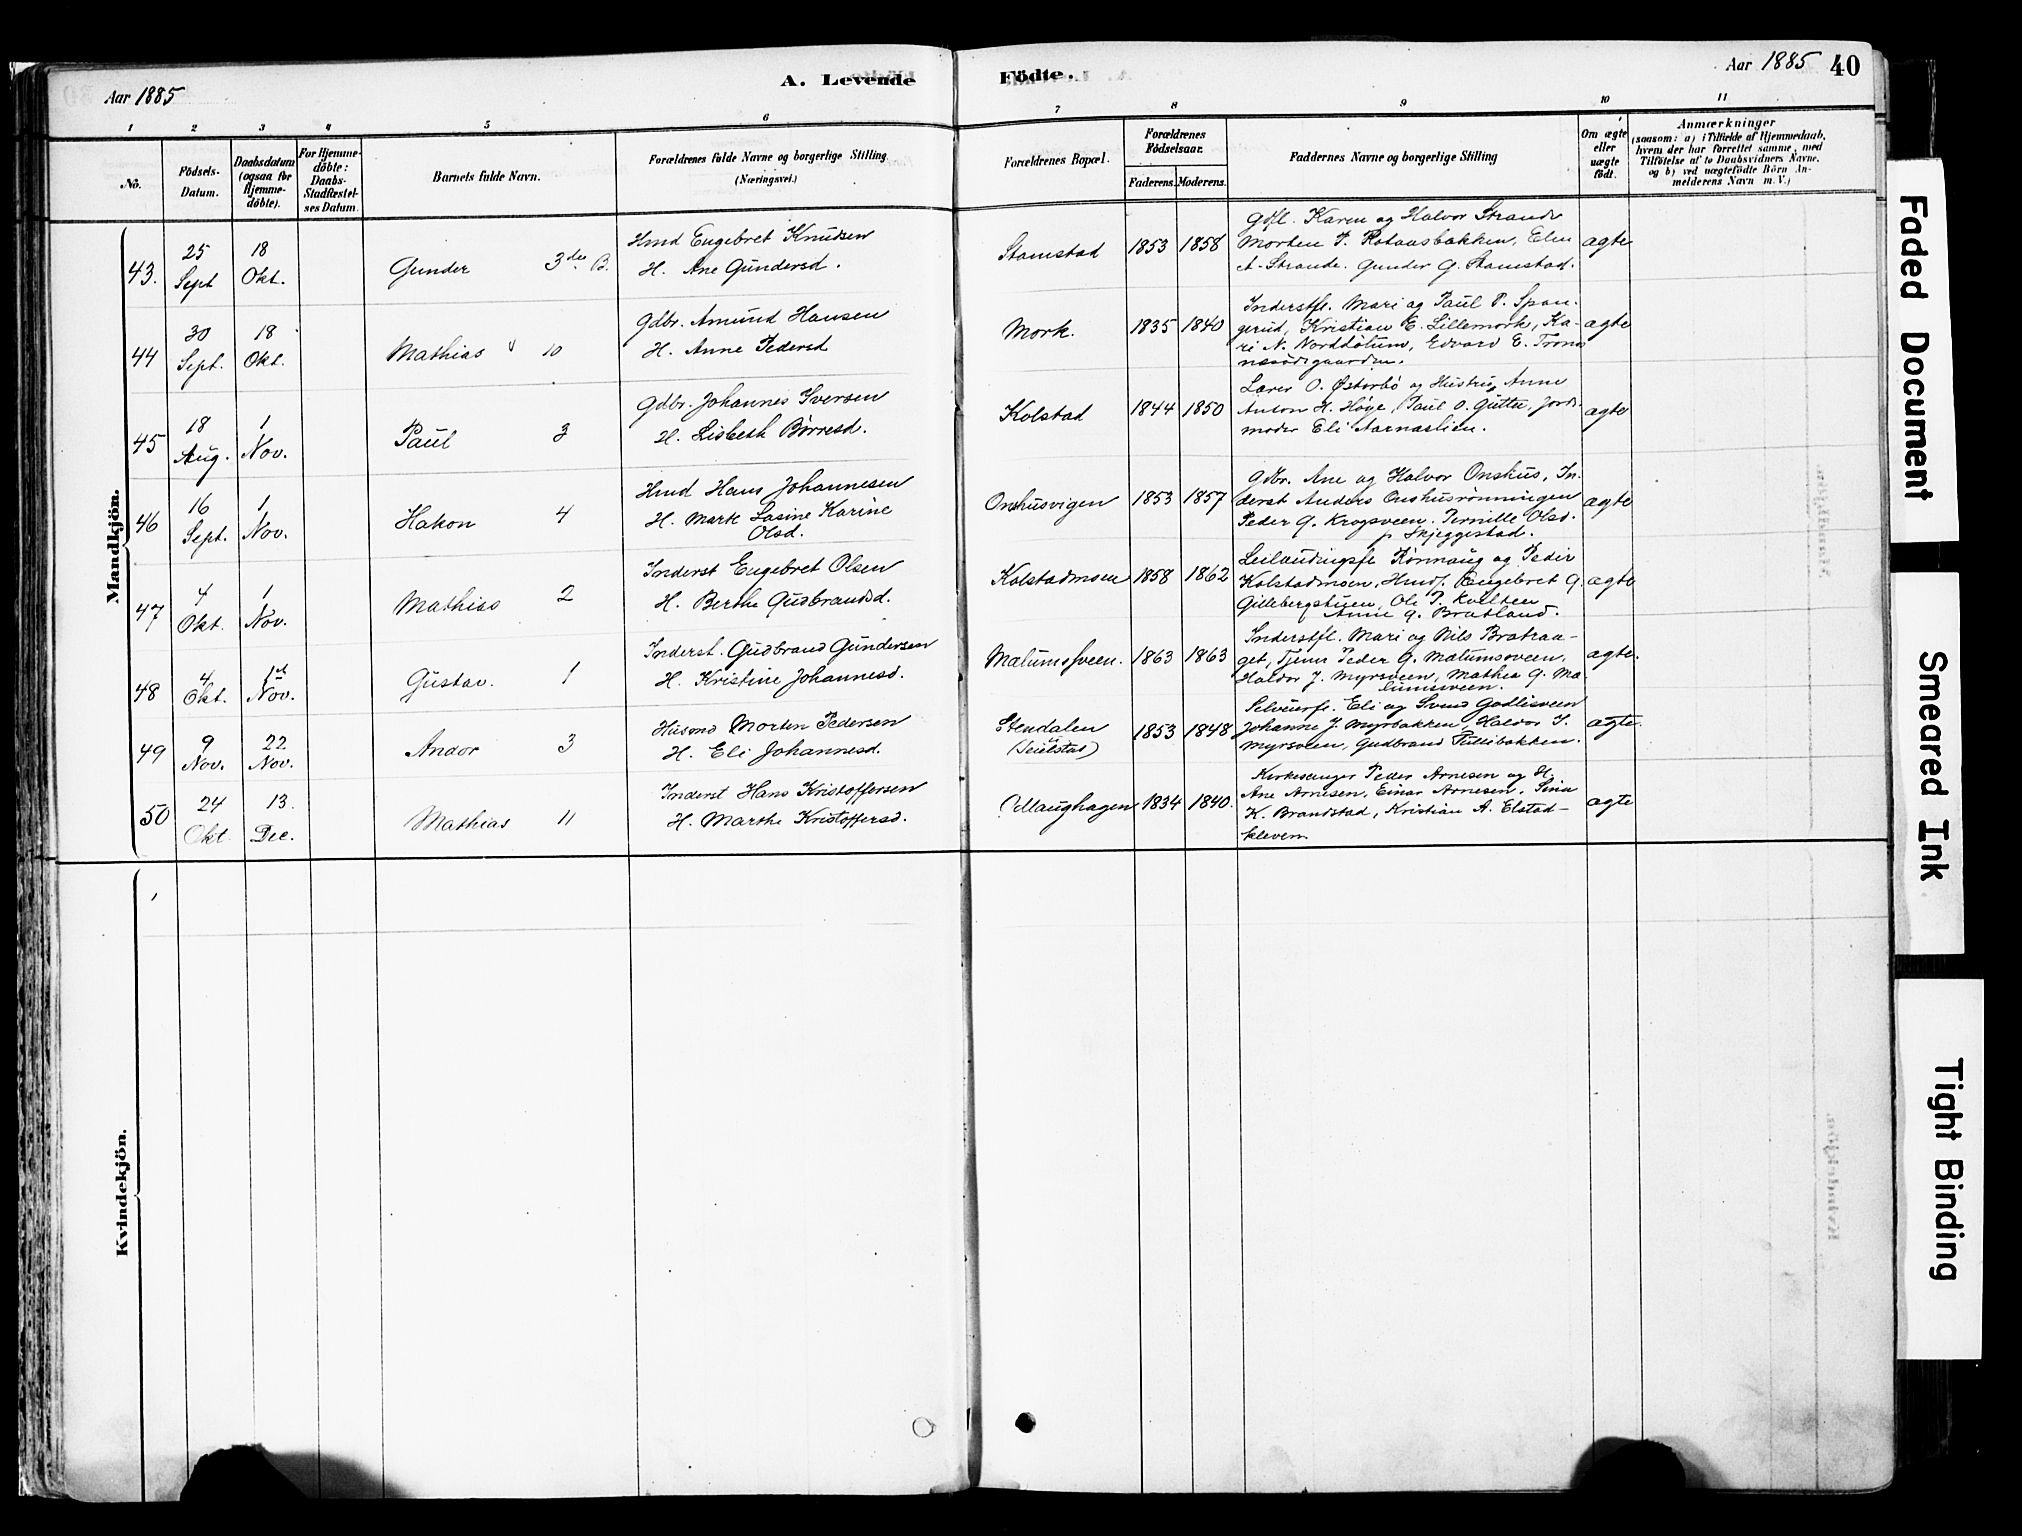 Aar 1885
A. Levende
Födte.
Aar 1885 40
1 2 3 4 5 6 7 8 9 10 11
No.
Födsels-
Datum.
Daabsdatum
(ogsaa for
Hjemme-
döbte).
For Hjemme-
döbte:
Daabs-
Stadfæstel-
ses Datum.
Barnets fulde Navn.
Forældrenes fulde Navne og borgerlige Stilling
(Næringsvei.)
Forældrenes Bopæl.
Forældrenes
Födselsaar.
Faderens. Moderens.
Faddernes Navne og borgerlige Stilling
Om ægte
eller
uægte
födt.
Anmærkninger
(saasom: a) i Tilfælde af Hjemmedaab,
hvem der har forrettet samme, med
Tilföielse af to Daabsvidners Navne,
og b) ved uægtefödte Börn An-
melderens Navn m. V.)
Mandkjön.
43. 25 Sept 18 Okt. Gunder 3die B.
Hmd Engebret Knudsen
H. Ane Gundersd.
Stamstad 1853 1858
Gdfl. Karen og Halvor Strande
Morten P. Rotaasbakken, Elen
A. Strande. Gunder G. Stamstad.
ægte
44 30 Sept. 18 Okt. Mathias 10
Gdbr. Amund Hansen
H. Anne Pedersd
Mork. 1835 1840
Inderstfl. Mari og Paul P. Span-
gerud, Kristian E. Lillemork, Ka-
ri N. Nordhötum, Edvard E. Trones
ægte
45 18 Aug. 1 Nov. Paul 3
Gdbr. Johannes Iversen
H. Lisbeth Börresd.
Kolstad 1844 1850
Lærer O. Österbö og Hustru Anne
Anton H. Höye, Paul O. Gutte, Jord-
moder Eli Aarnæslien.
ægte
46 16 Sept. 1 Nov. Hakon 4
Hmd Hans Johannesen
H. Mark Lasine Karine
Olsd.
Onshusvigen 1853 1857
Gdbr. Ane og Halvor Onshus, In-
derst Anders Onshusrönningen
Peder G. Krogsveen. Pernille Olsd.
p Skjeggestad.
ægte
47 4 Okt. 1 Nov. Mathias 2
Inderst Engebret Olsen
H. Berthe Gudbrandsd.
Kolstadmoen 1858 1862
Leilændingsfl Rönnaug og Peder
Kolstadmoen, Hmdf. Engebret G
Gillebergstuen, Ole P. Kvilteen
Anne G. Bratland.
ægte
48 4 Okt. 1st Nov. Gustav. 1
Inderst. Gudbrand Gundersen
H. Kristine Johannesd.
Mælumsveen. 1863 1863
Inderstfl. Mari og Nils Bratraa-
get, Tjener Peder G. Mælumsveen,
Haldor J. Myrsveen, Mathea G. Mæ-
lumsveen.
ægte.
49 9 Nov. 22 Nov. Andor 3
Husmd Morten Pedersen
H. Eli Johannesd.
Stendalen
1853 1848
Selveierfl. Eli og Svend Godlisveen
Johanne J. Myrbakken, Haldor J.
Myrsveen, Gudbrand Tullibakken.
ægte.
50 24 Okt 13. Dec. Mathias 11
Inderst Hans Kristoffersen
H. Marthe Kristoffersd.
Odlaughagen 1834 1840.
Kirkesanger Peder Arnesen og H.
Ane Arnesen, Einar Arnesen, Sina
K. Brandstad, Kristian A. Elstad-
kleven
ægte
Kvindekjön.
Faded Document
Smeared Ink
Tight Binding